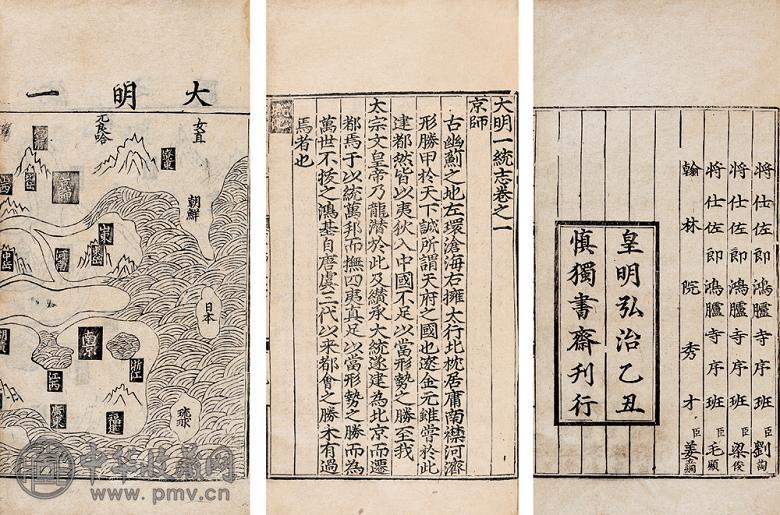 大明一
女直
兀良哈
遼東
朝鮮
京師
山東
河南
日本
南京
浙江
江西
福建
廣東
琉球
大明一統志卷之一
京師
古幽薊之地左環滄海右擁太行北枕居庸南襟河濟
形勝甲於天下誠所謂天府之國也遼金元雖嘗於此
建都然皆以夷狄入中國不足以當形勢之勝至我
太宗文皇帝乃龍潛於此及纘承大統遂建為北京而遷
都焉于以統萬邦而撫四夷真足以當形勢之勝而為
萬世不拔之鴻基自唐虞三代以來都會之勝未有過
焉者也
將仕佐郎鴻臚寺序班臣劉詢
將仕佐郎鴻臚寺序班臣梁俊
將仕佐郎鴻臚寺序班臣毛顯
翰林院秀才臣姜立綱
皇明弘治乙丑
慎獨書齋刊行
中华收藏网
www.pmv.cn